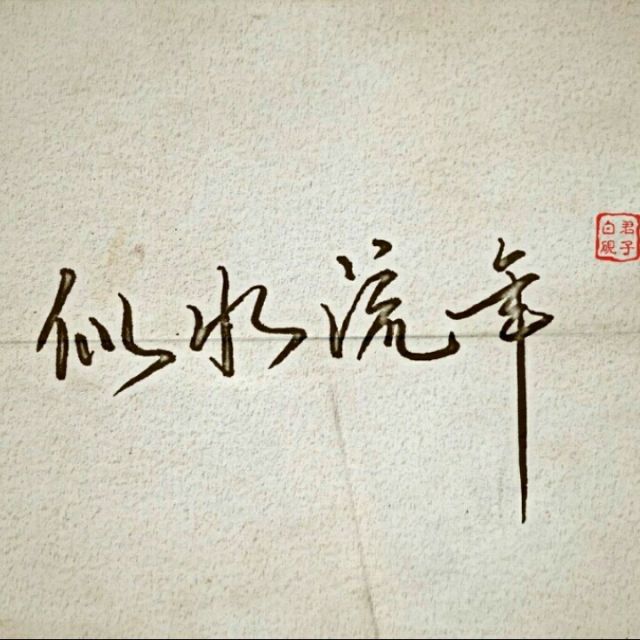 似水流年
君子白砚